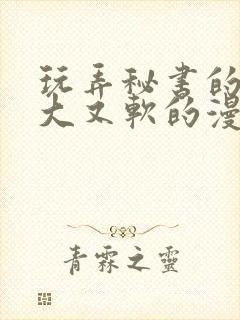 玩弄秘书的
大又软的漫
青霖之靈